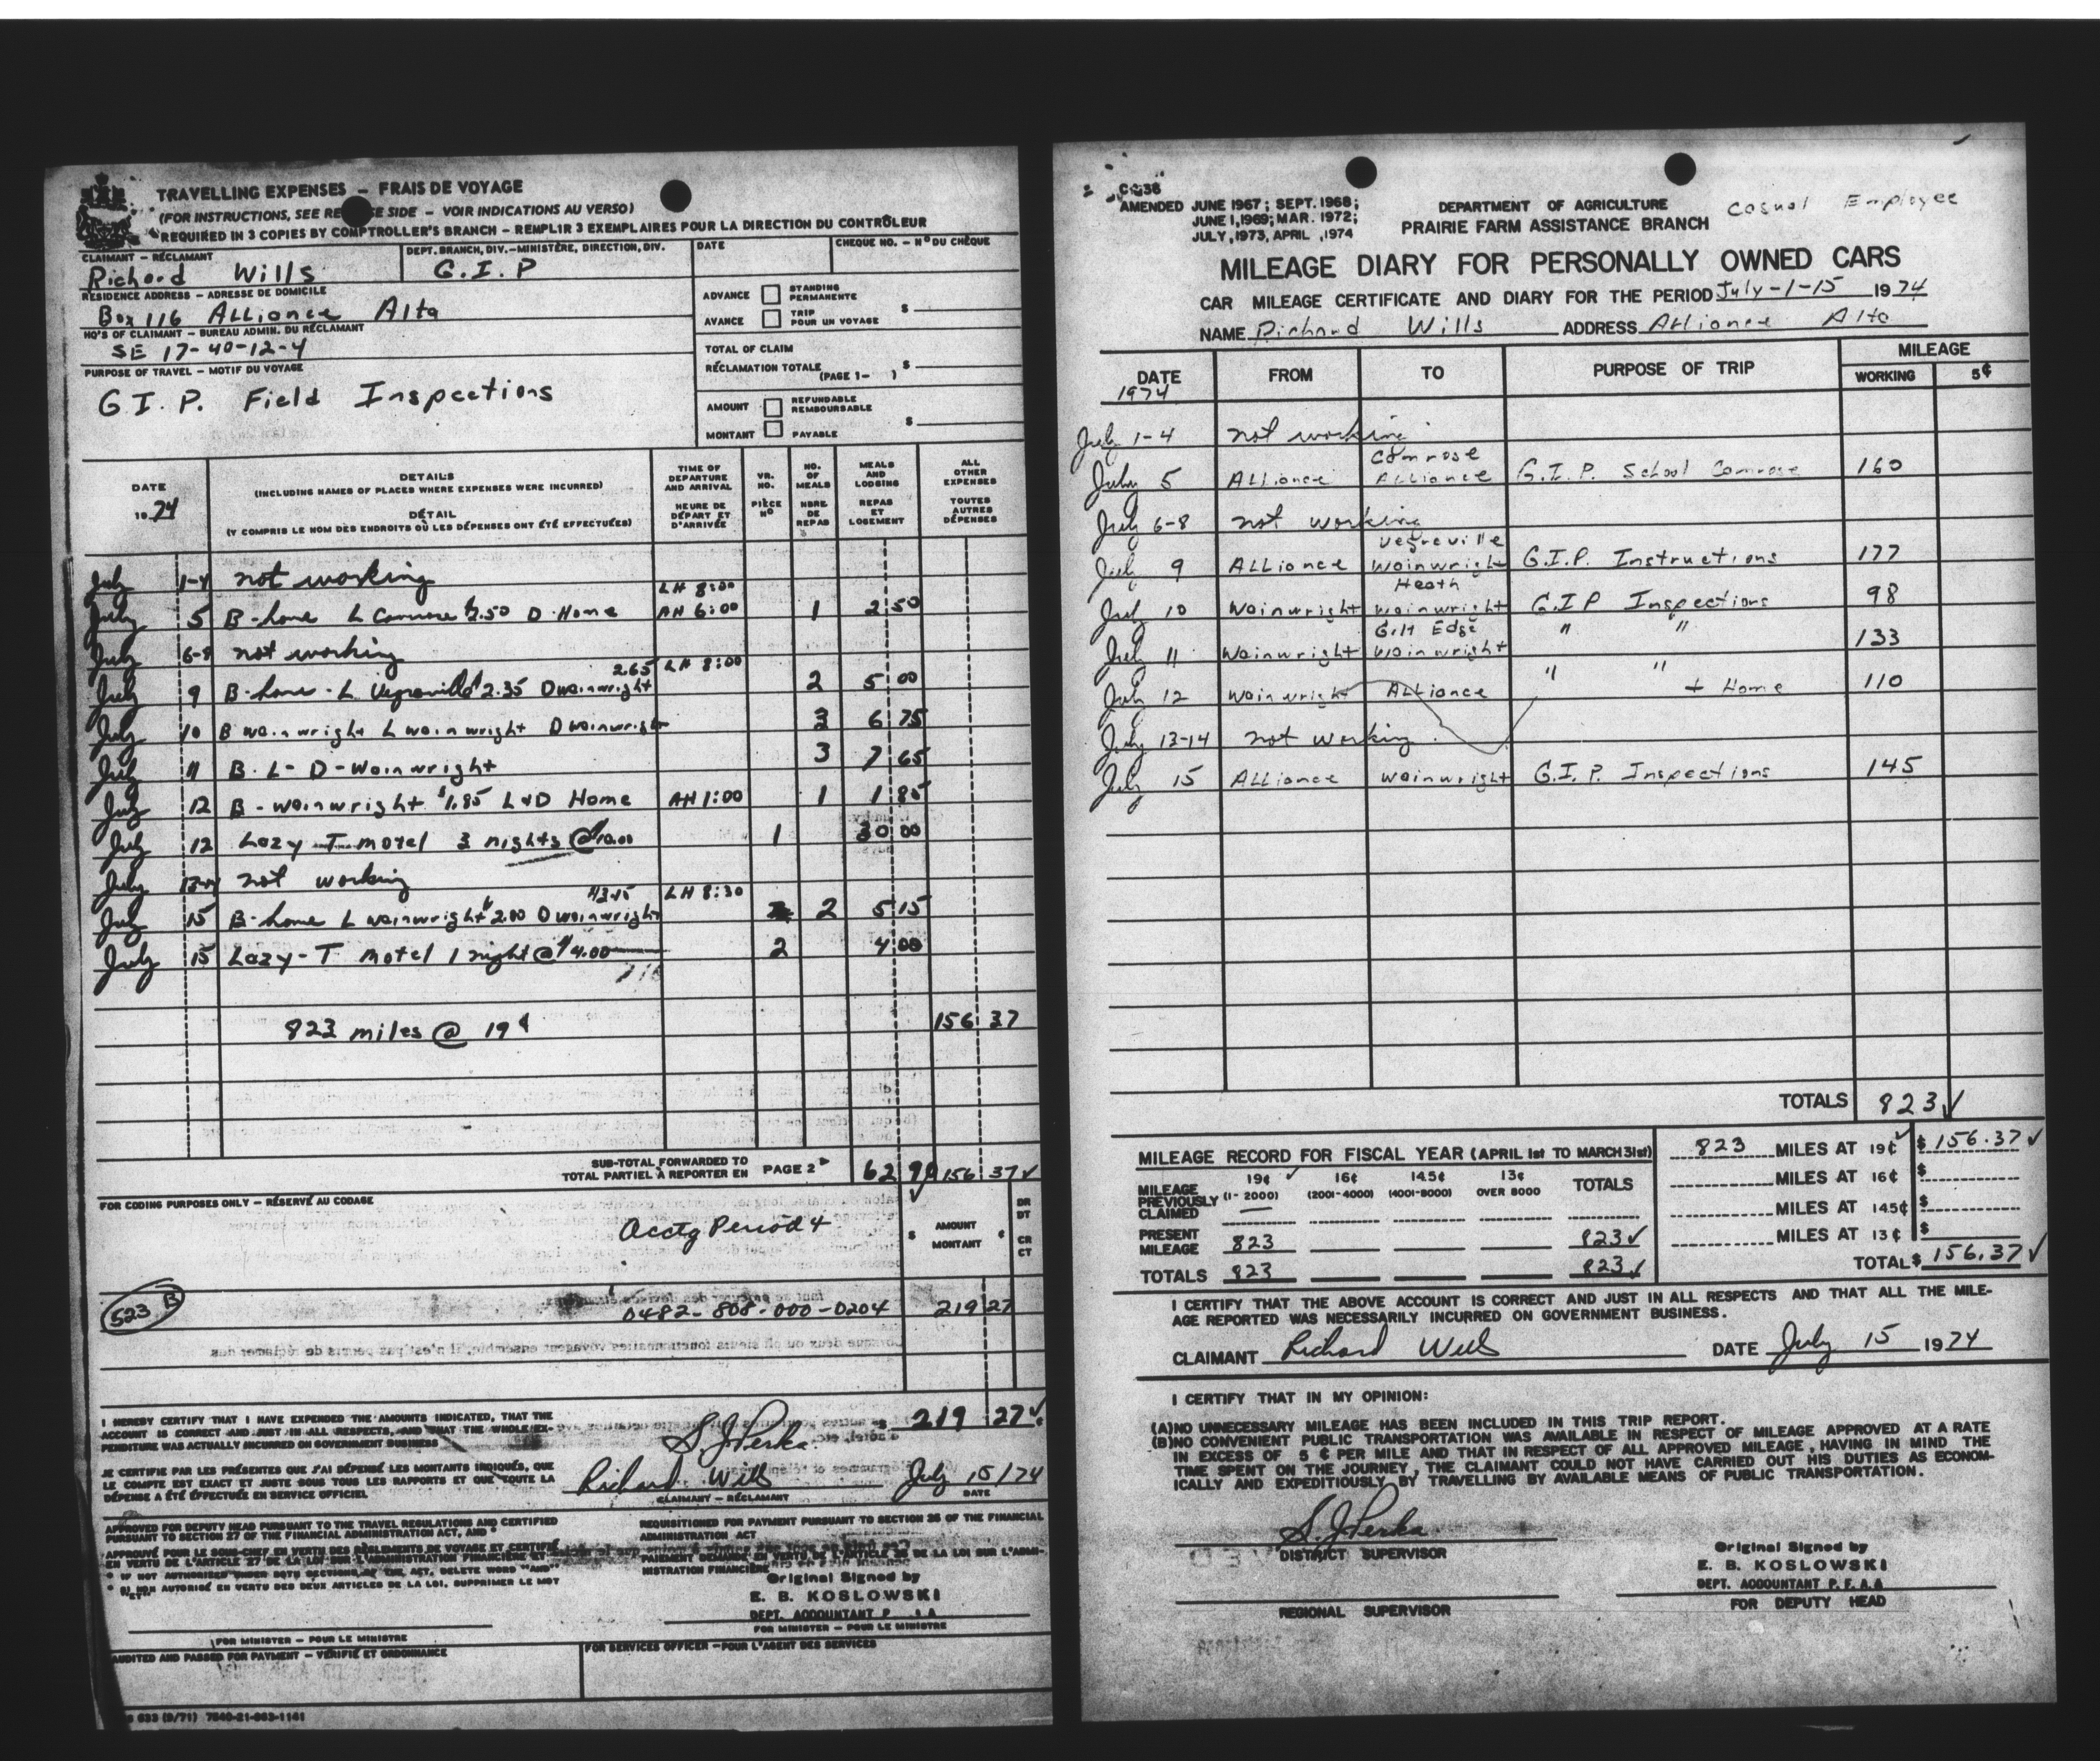 TRAVELLING EXPENSES – FRAIS DE VOYAGE
(FOR INSTRUCTIONS, SEE RE SE SIDE – VOIR INDICATIONS AU VERSO)
REQUIRED IN 3 COPIES BY COMPTROLLER'S BRANCH – REMPLIR 3 EXEMPLAIRES POUR LA DIRECTION DU CONTRÔLEUR
CLAIMANT – RÉCLAMANT
Richard Wills
DEPT. BRANCH, DIV.–MINISTÈRE, DIRECTION, DIV.
G.I.P
DATE
CHEQUE NO. – Nº DU CHÈQUE
RESIDENCE ADDRESS – ADRESSE DE DOMICILE
Box 116 Alliance Alta
HQ'S OF CLAIMANT – BUREAU ADMIN. DU RÉCLAMANT
SE 17-40-12-4
PURPOSE OF TRAVEL – MOTIF DU VOYAGE
G.I.P. Field Inspections
ADVANCE STANDING PERMANENTE
AVANCE TRIP POUR UN VOYAGE $
TOTAL OF CLAIM
RÉCLAMATION TOTALE (PAGE 1– ) $
AMOUNT REFUNDABLE REMBOURSABLE
MONTANT PAYABLE $
DATE 19 74
DETAILS
(INCLUDING NAMES OF PLACES WHERE EXPENSES WERE INCURRED)
DÉTAIL
(Y COMPRIS LE NOM DES ENDROITS OÙ LES DÉPENSES ONT ÉTÉ EFFECTUÉES)
TIME OF DEPARTURE AND ARRIVAL
HEURE DE DÉPART ET D'ARRIVÉE
VR. NO.
PIÈCE Nº
NO. OF MEALS
NBRE. DE REPAS
MEALS AND LODGING
REPAS ET LOGEMENT
ALL OTHER EXPENSES
TOUTES AUTRES DÉPENSES
July 1-4 not working
LH 8:00
July 5 B-home L Camrose $2.50 D-Home AH 6:00 1 2 50
July 6-8 not working
2.65 LH 8:00
July 9 B-home-L Vegreville 2.35 D wainwright 2 5 00
July 10 B wainwright L wainwright D wainwright 3 6 75
July 11 B-L-D-Wainwright 3 7 65
July 12 B-wainwright $1.85 L+D Home AH 1:00 1 1 85
July 12 Lazy T motel 3 nights @ $10.00 1 30 00
July 13-14 not working
$3.15 LH 8:30
July 15 B-home L wainwright $2.00 D wainwright 2 5 15
July 15 Lazy-T Motel 1 night @ $4.00 2 4 00
823 miles @ 19¢ 156 37
SUB-TOTAL FORWARDED TO
TOTAL PARTIEL À REPORTER EN PAGE 2 62 90 156 37 ✓
FOR CODING PURPOSES ONLY – RÉSERVÉ AU CODAGE
Acctg Period 4
$ AMOUNT MONTANT ¢
DR DT
CR CT
523 B
0482-808-000-0204 219 27
I HEREBY CERTIFY THAT I HAVE EXPENDED THE AMOUNTS INDICATED, THAT THE
ACCOUNT IS CORRECT AND JUST IN ALL RESPECTS, AND THAT THE WHOLE EX-
PENDITURE WAS ACTUALLY INCURRED ON GOVERNMENT BUSINESS
$ 219 27 ✓
S. J. Perka
JE CERTIFIE PAR LES PRÉSENTES QUE J'AI DÉPENSÉ LES MONTANTS INDIQUÉS, QUE
LE COMPTE EST EXACT ET JUSTE SOUS TOUS LES RAPPORTS ET QUE TOUTE LA
DÉPENSE A ÉTÉ EFFECTUÉE EN SERVICE OFFICIEL
Richard Wills July 15/74
CLAIMANT – RÉCLAMANT DATE
APPROVED FOR DEPUTY HEAD PURSUANT TO THE TRAVEL REGULATIONS AND CERTIFIED
PURSUANT TO SECTION 27 OF THE FINANCIAL ADMINISTRATION ACT, AND *
APPROUVÉ POUR LE SOUS-CHEF EN VERTU DES RÈGLEMENTS DE VOYAGE ET CERTIFIÉ
EN VERTU DE L'ARTICLE 27 DE LA LOI SUR L'ADMINISTRATION FINANCIÈRE ET
* IF NOT AUTHORIZED UNDER BOTH SECTIONS OF THE ACT, DELETE WORD "AND"
* SI NON AUTORISÉ EN VERTU DES DEUX ARTICLES DE LA LOI, SUPPRIMER LE MOT
"ET"
REQUISITIONED FOR PAYMENT PURSUANT TO SECTION 26 OF THE FINANCIAL
ADMINISTRATION ACT
PAIEMENT DEMANDÉ EN VERTU DE L'ARTICLE 26 DE LA LOI SUR L'ADMI-
NISTRATION FINANCIÈRE
Original Signed by
E. B. KOSLOWSKI
DEPT. ACCOUNTANT P A
FOR MINISTER – POUR LE MINISTRE
FOR MINISTER – POUR LE MINISTRE
AUDITED AND PASSED FOR PAYMENT – VÉRIFIÉ ET ORDONNANCÉ
FOR SERVICES OFFICER – POUR L'AGENT DES SERVICES
633 (9/71) 7540-21-863-1141
AMENDED JUNE 1967; SEPT. 1968;
JUNE 1, 1969; MAR. 1972;
JULY, 1973, APRIL, 1974
DEPARTMENT OF AGRICULTURE
PRAIRIE FARM ASSISTANCE BRANCH
Casual Employee
MILEAGE DIARY FOR PERSONALLY OWNED CARS
CAR MILEAGE CERTIFICATE AND DIARY FOR THE PERIOD July-1-15 19 74
NAME Richard Wills ADDRESS Alliance Alta
DATE 1974
FROM
TO
PURPOSE OF TRIP
MILEAGE
WORKING
5¢
July 1-4 not working
Camrose
July 5 Alliance Alliance G.I.P. School Camrose 160
July 6-8 not working
Vegreville
July 9 Alliance Wainwright G.I.P. Instructions 177
Heath
July 10 Wainwright Wainwright G.I.P Inspections 98
Gilt Edge
July 11 Wainwright Wainwright " " 133
July 12 Wainwright Alliance " " + Home 110
July 13-14 not working
July 15 Alliance Wainwright G.I.P. Inspections 145
TOTALS 823 ✓
MILEAGE RECORD FOR FISCAL YEAR (APRIL 1st TO MARCH 31st)
19¢ 16¢ 14.5¢ 13¢
MILEAGE PREVIOUSLY CLAIMED (1-2000) (2001-4000) (4001-8000) OVER 8000 TOTALS
PRESENT MILEAGE 823 823 ✓
TOTALS 823 823 ✓
823 MILES AT 19¢ $ 156.37 ✓
MILES AT 16¢ $
MILES AT 14.5¢ $
MILES AT 13¢ $
TOTAL $ 156.37 ✓
I CERTIFY THAT THE ABOVE ACCOUNT IS CORRECT AND JUST IN ALL RESPECTS AND THAT ALL THE MILE-
AGE REPORTED WAS NECESSARILY INCURRED ON GOVERNMENT BUSINESS.
CLAIMANT Richard Wills DATE July 15 19 74
I CERTIFY THAT IN MY OPINION:
(A) NO UNNECESSARY MILEAGE HAS BEEN INCLUDED IN THIS TRIP REPORT.
(B) NO CONVENIENT PUBLIC TRANSPORTATION WAS AVAILABLE IN RESPECT OF MILEAGE APPROVED AT A RATE
IN EXCESS OF 5 ¢ PER MILE AND THAT IN RESPECT OF ALL APPROVED MILEAGE, HAVING IN MIND THE
TIME SPENT ON THE JOURNEY, THE CLAIMANT COULD NOT HAVE CARRIED OUT HIS DUTIES AS ECONOM-
ICALLY AND EXPEDITIOUSLY BY TRAVELLING BY AVAILABLE MEANS OF PUBLIC TRANSPORTATION.
S. J. Perka
DISTRICT SUPERVISOR
REGIONAL SUPERVISOR
Original Signed by
E. B. KOSLOWSKI
DEPT. ACCOUNTANT P. F. A. A
FOR DEPUTY HEAD